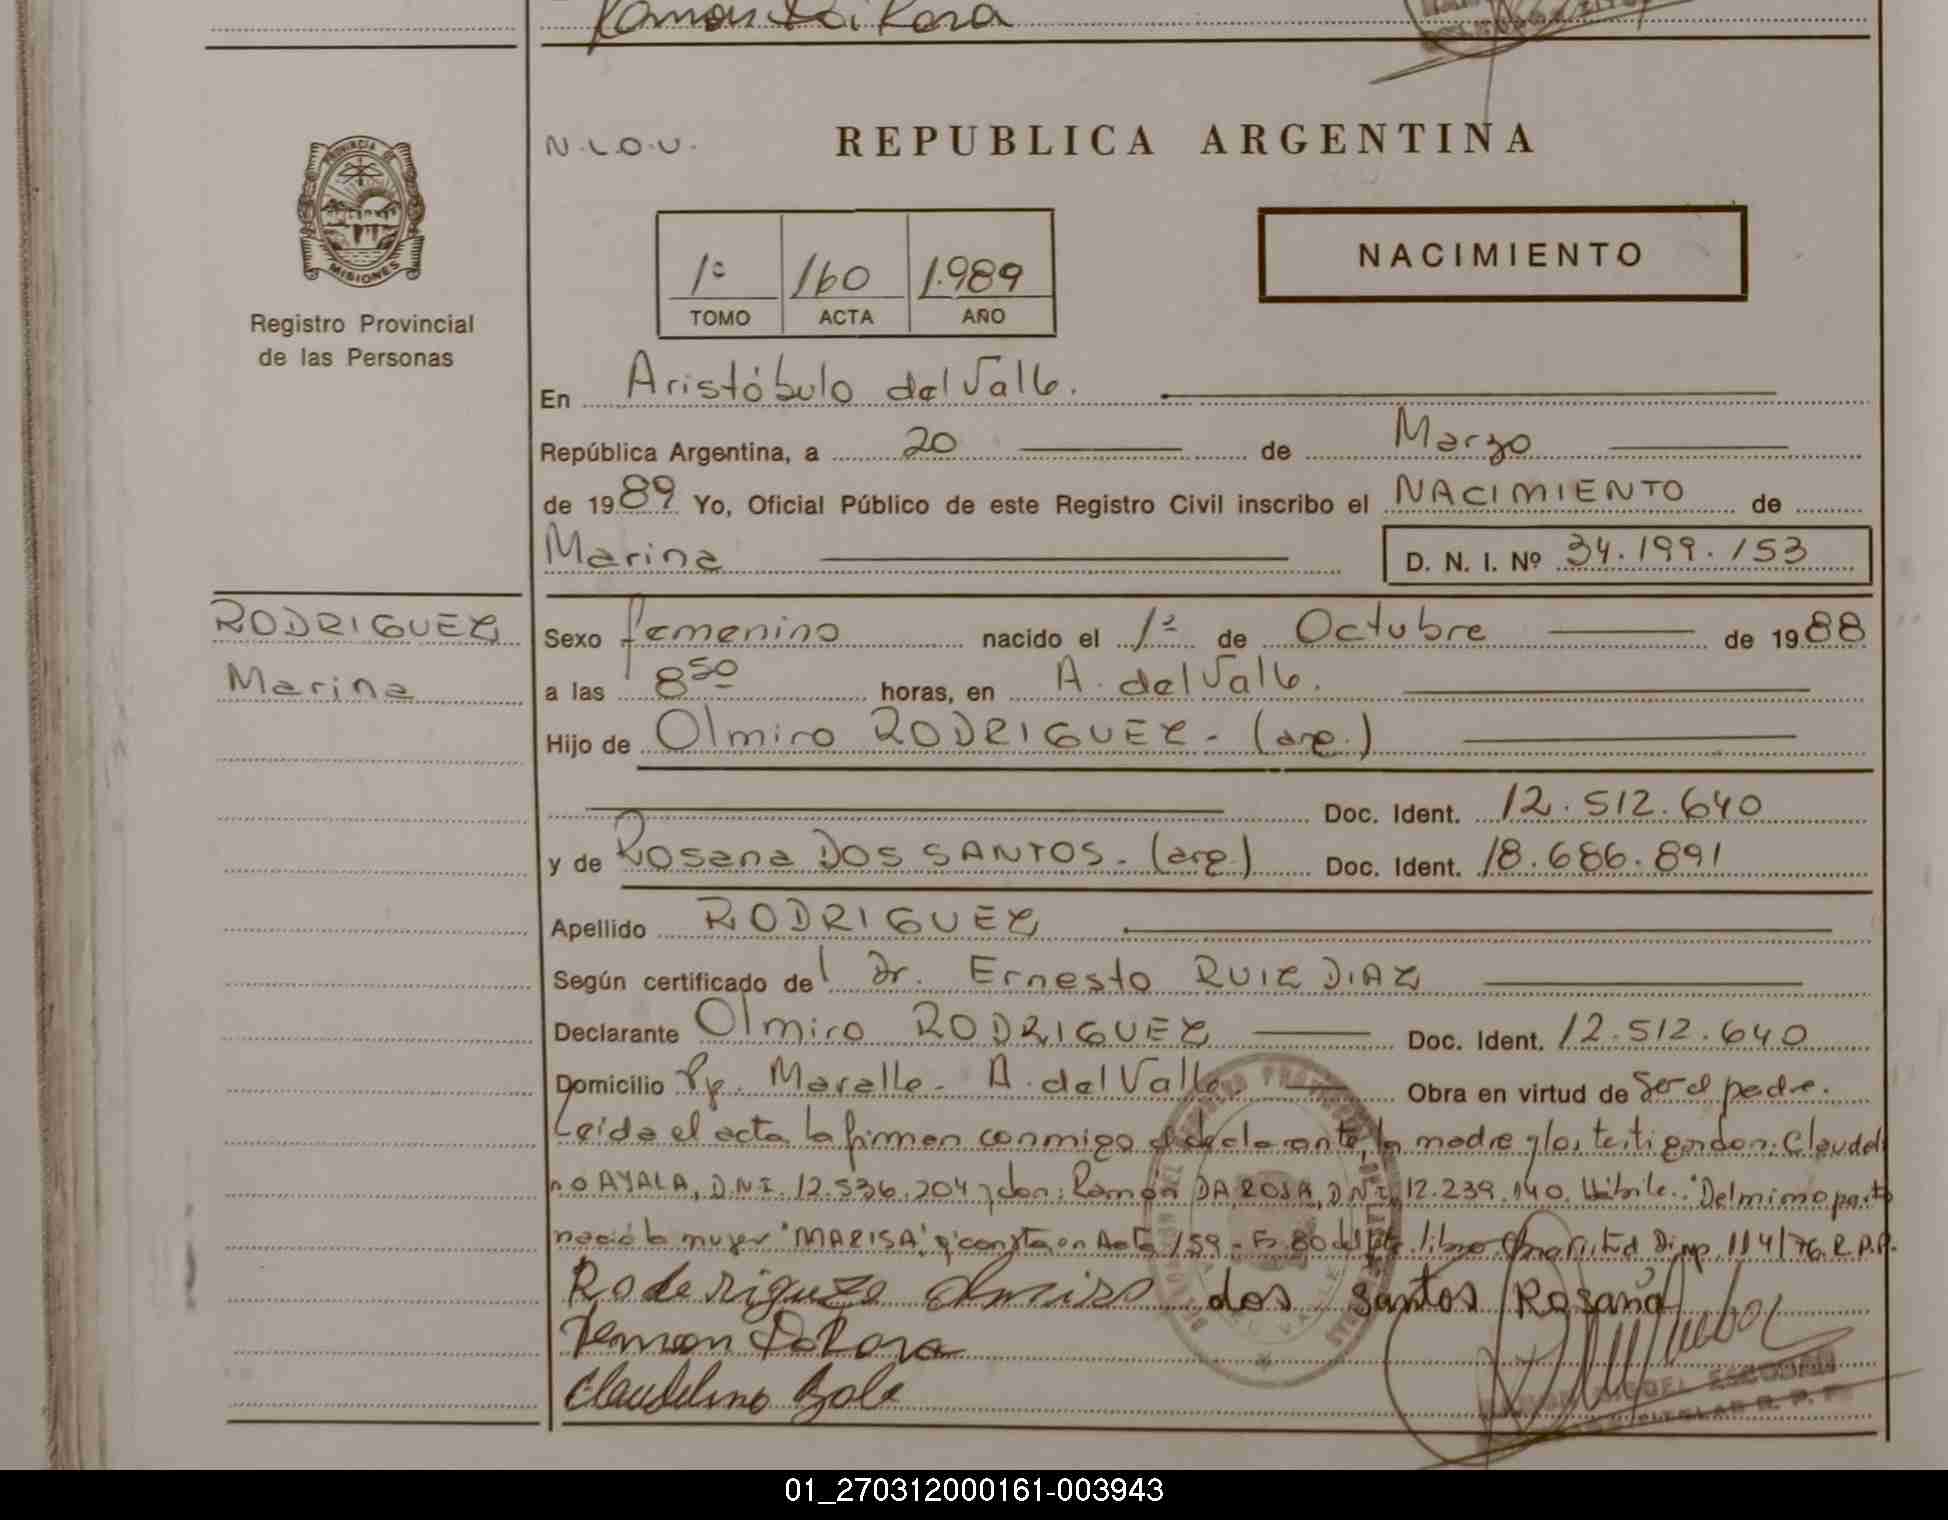 Ramon Da Rosa
N.L.O.U.
REPUBLICA ARGENTINA
PROVINCIA DE
MISIONES
Registro Provincial
de las Personas
1º 160 1.989
TOMO ACTA AÑO
NACIMIENTO
En Aristóbulo del Valle.
República Argentina, a 20 de Marzo
de 1989 Yo, Oficial Público de este Registro Civil inscribo el NACIMIENTO de
Marina D. N. I. Nº 34.199.153
RODRIGUEZ
Marina
Sexo femenino nacido el 1º de Octubre de 1988
a las 8 50 horas, en A. del Valle.
Hijo de Olmiro RODRIGUEZ - (arg.)
Doc. Ident. 12.512.640
y de Rosana DOS SANTOS. (arg.) Doc. Ident. 18.686.891
Apellido RODRIGUEZ
Según certificado del Dr. Ernesto RUIZ DIAZ
Declarante Olmiro RODRIGUEZ Doc. Ident. 12.512.640
Domicilio Pje. Maralle - A. del Valle Obra en virtud de Ser el padre.
Leida el acta la firman conmigo el declarante, la madre y los testigos don: Claudeli
no AYALA, D.N.I. 12.536.204 y don: Ramón DA ROSA, D.N.I. 12.239.140. Hábile.: "Del mismo parto
nació la mujer "MARISA", q' consta en Acta 159 - F. 80 del libro Disp. 114/76 R.P.P.
Roderiguze olmiro dos santos Rosana
Remon Da Rosa
Claudelino
ESCOBAR
R. P. P.
01_270312000161-003943